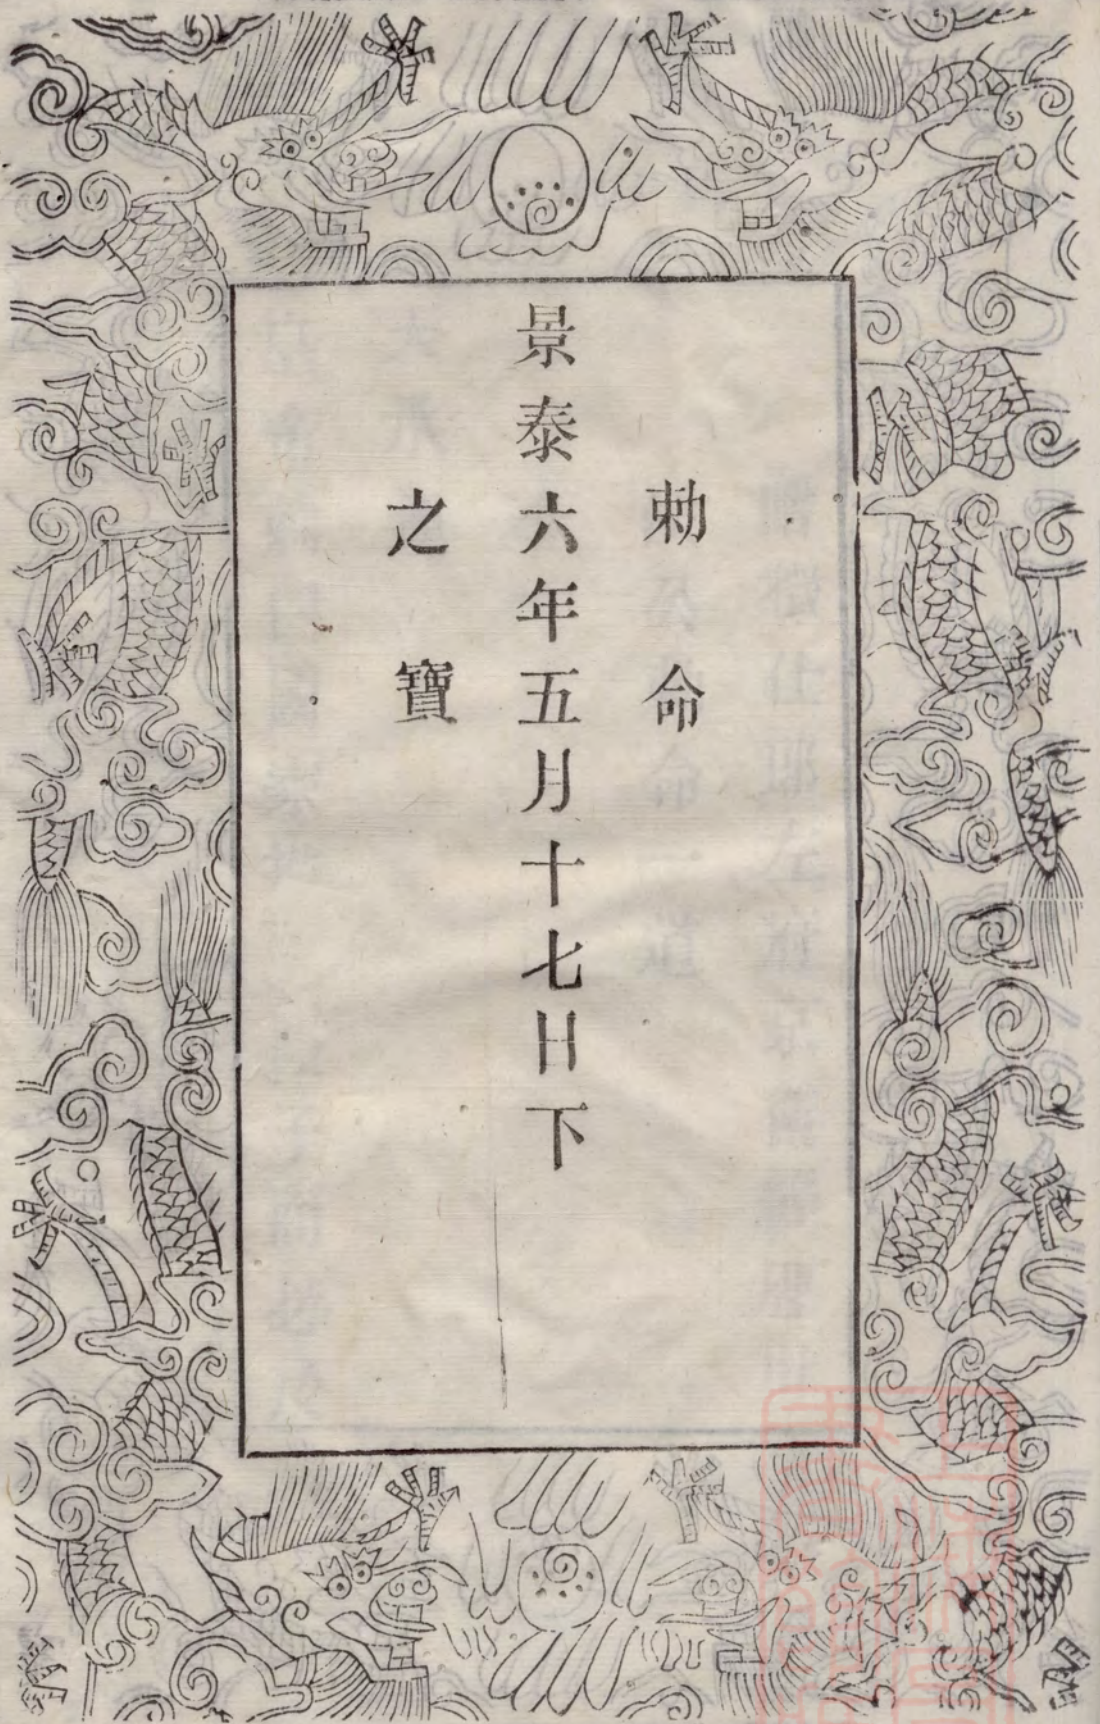 勅命
景泰六年五月十七日下
之寶